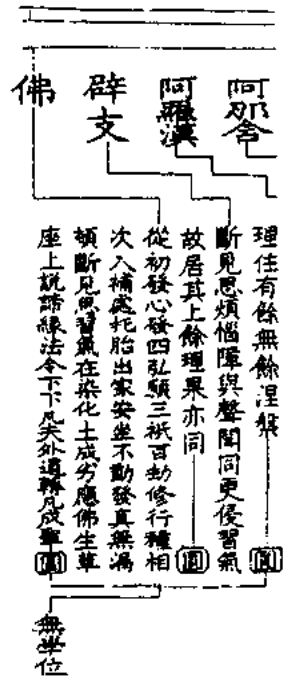 阿那含
阿羅漢
辟支
佛
理住有餘無餘涅槃
圓
斷見思煩惱障與聲聞同更侵習氣
故居其上餘理果亦同
圓
從初發心發四弘願三祇百劫修行種相
次入補處托胎出家安坐不動發真無漏
頓斷見思習氣在染化土成劣應佛生草
座上說諦緣法令下下凡夫外道轉凡成聖
圓
無學位